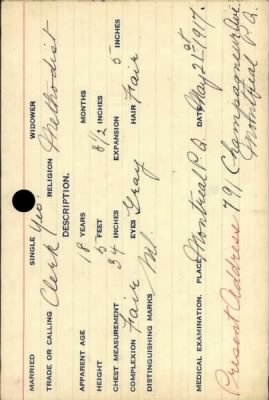 MARRIED SINGLE Yes WIDOWER
TRADE OR CALLING Clerk RELIGION Methodist
DESCRIPTION.
APPARENT AGE 18 YEARS MONTHS
HEIGHT 5 FEET 8 1/2 INCHES
CHEST MEASUREMENT 34 INCHES EXPANSION 5 INCHES
COMPLEXION Fair EYES Gray HAIR Fair
DISTINGUISHING MARKS
MEDICAL EXAMINATION. PLACE Montreal P.Q. DATE May 21st 1917.
Present Address 791 Champagneur Ave.
Montreal P.Q.